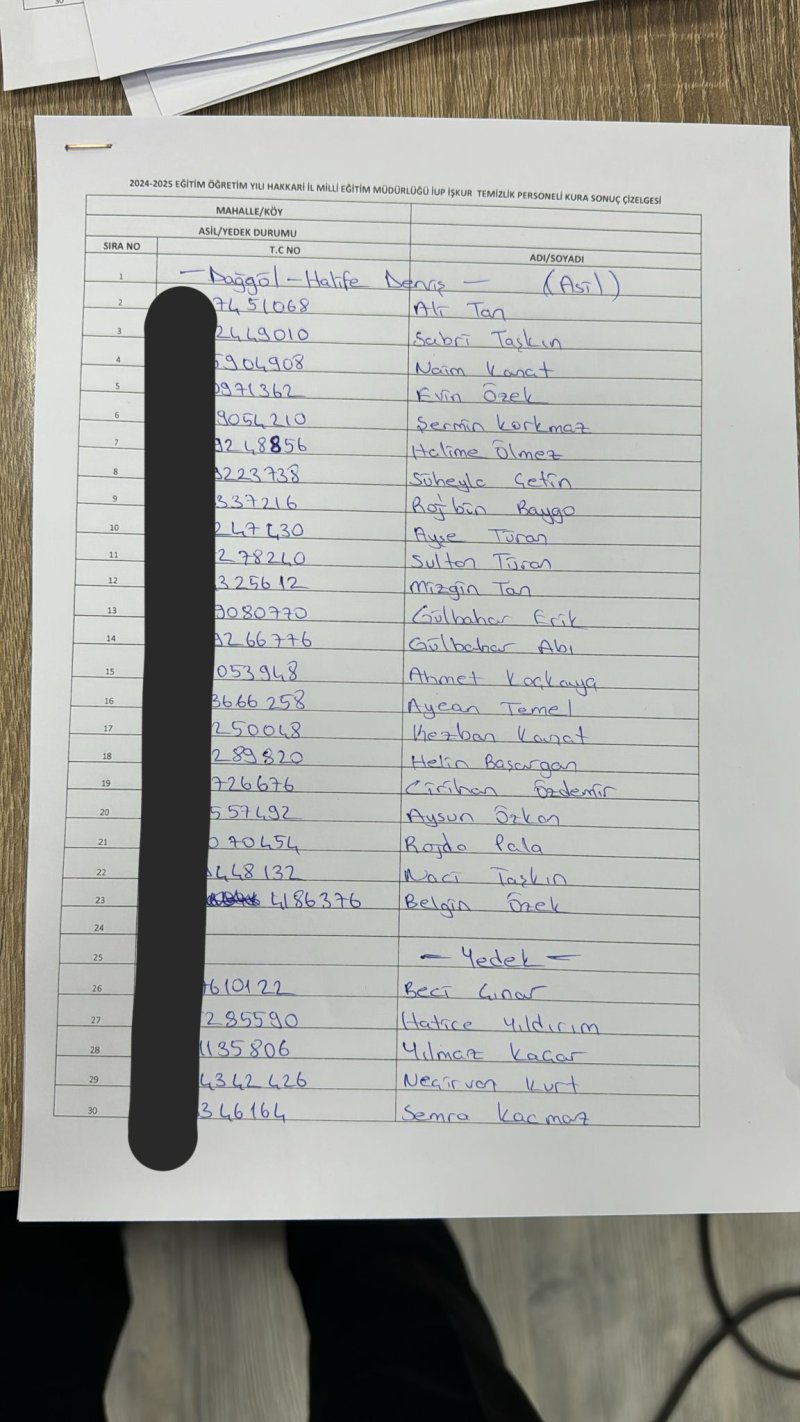 2024-2025 EĞİTİM ÖĞRETİM YILI HAKKARİ İL MİLLİ EĞİTİM MÜDÜRLÜĞÜ İUP İŞKUR TEMİZLİK PERSONELİ KURA SONUÇ ÇİZELGESİ
MAHALLE/KÖY
ASİL/YEDEK DURUMU
SIRA NO T.C NO ADI/SOYADI
1 — Dağgöl - Halife Derviş — (Asil)
2 7451068 Ali Tan
3 2449010 Sabri Taşkın
4 5904908 Naim Kanat
5 971362 Evin Özek
6 9054210 Şermin Korkmaz
7 9248856 Halime Ölmez
8 223738 Süheyla Çetin
9 337216 Rojbin Baygo
10 247430 Ayşe Turan
11 278240 Sultan Turan
12 325612 Mizgin Tan
13 9080770 Gülbahar Erik
14 266776 Gülbahar Abı
15 053948 Ahmet Koçkaya
16 3666258 Aycan Temel
17 250048 Kezban Kanat
18 289820 Helin Başargan
19 726676 Özdemir
20 557492 Aysun Özkan
21 070454 Rojda Pala
22 448132 Naci Taşkın
23 4186376 Belgin Özek
24
25 — Yedek —
26 610122 Beci Çınar
27 285590 Hatice Yıldırım
28 1135806 Yılmaz Kaçar
29 4342426 Neçirvan Kurt
30 346164 Semra Kaçmaz